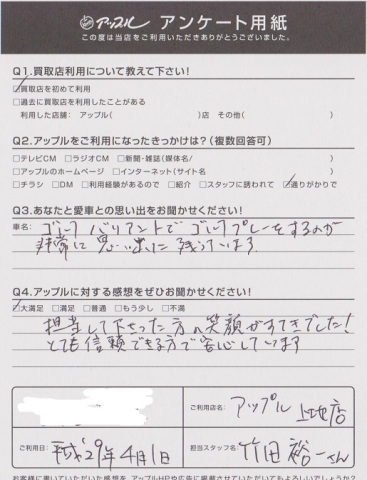 アップル アンケート用紙
この度は当店をご利用いただきありがとうございました。
Q1.買取店利用について教えて下さい!
☑買取店を初めて利用
□過去に買取店を利用したことがある
利用した店舗:アップル( )店 その他( )
Q2.アップルをご利用になったきっかけは?(複数回答可)
□テレビCM □ラジオCM □新聞・雑誌(媒体名/ )
□アップルのホームページ □インターネット(サイト名 )
□チラシ □DM □利用経験があるので □紹介 □スタッフに誘われて ☑通りがかりで
Q3.あなたと愛車との思い出をお聞かせください!
車名: ゴルフ バリアントで ゴルフプレーをするのが
非常に思い出に残っています
Q4.アップルに対する感想をぜひお聞かせください!
☑大満足 □満足 □普通 □もう少し □不満
担当して下さった方の笑顔がすてきでした!
とても信頼できる方で安心しています
ご利用店名: アップル 上地店
ご利用日: 平成29年4月1日
担当スタッフ名: 竹田裕一さん
お客様に書いていただいた感想を、アップルHPや広告に掲載させていただいてもよろしいでしょうか?